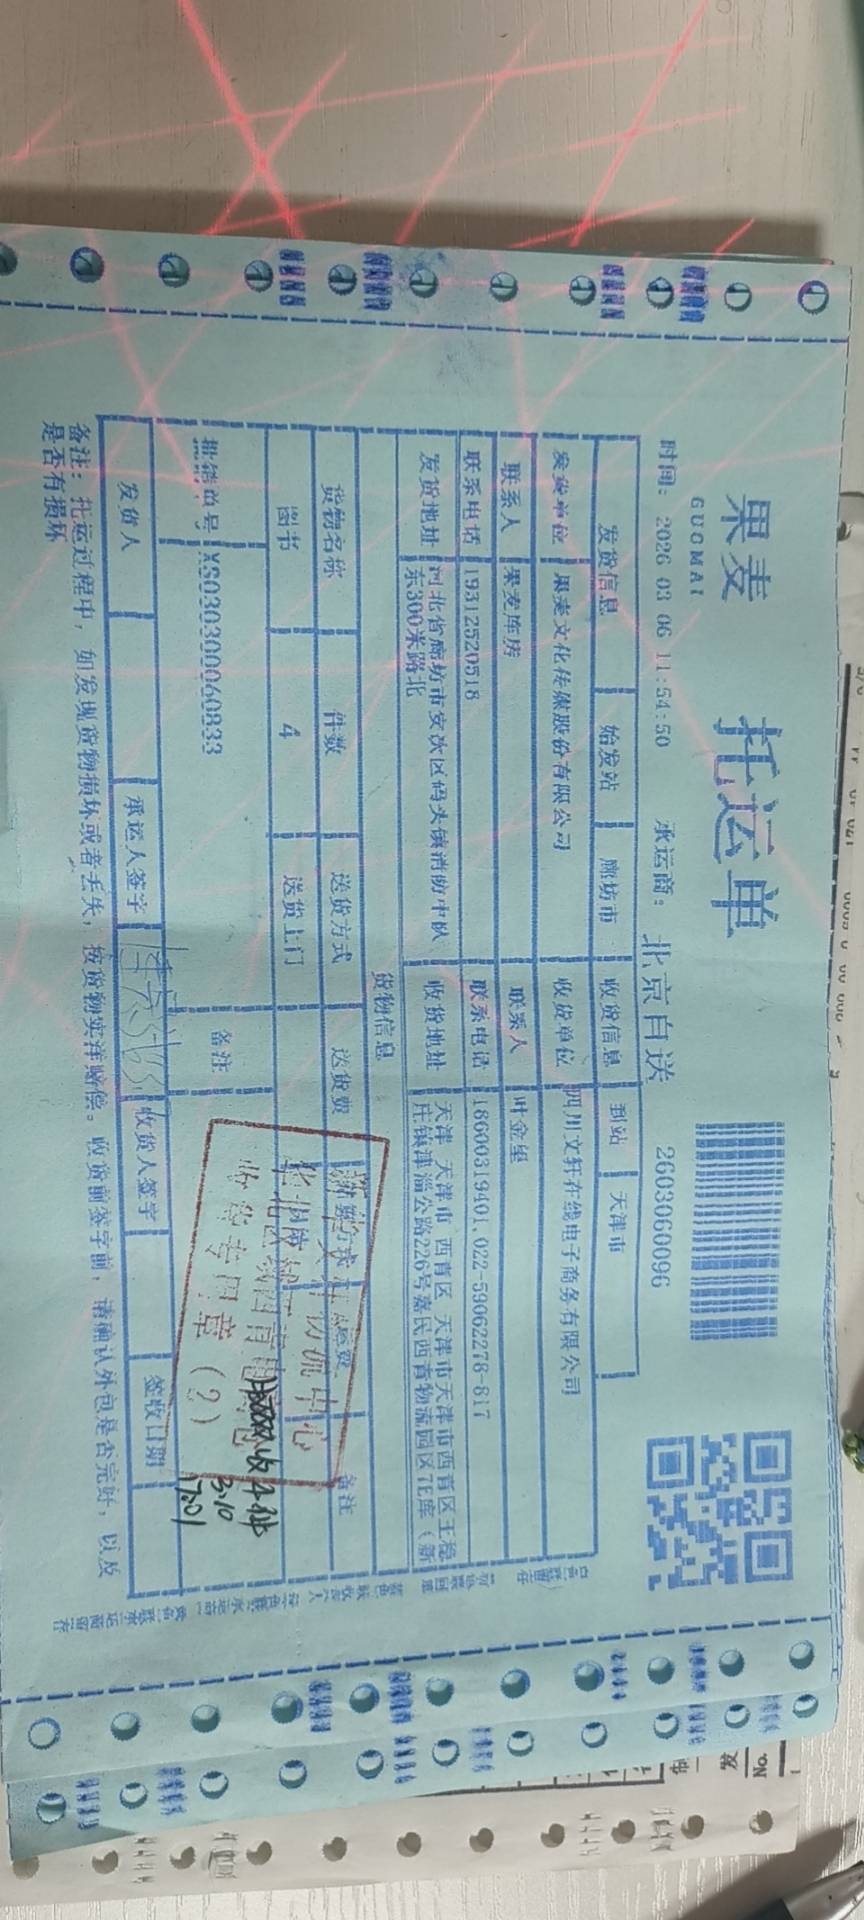 果麦
GUOMAI
托运单
时间： 2026 03 06 11:54:50 承运商： 北京自送 2603060096
发货信息 始发站 廊坊市 收货信息 到站 天津市
发货单位 果麦文化传媒股份有限公司 收货单位 四川文轩在线电子商务有限公司
联系人 果麦库房 联系人 叶金星
联系电话 19312520518 联系电话 18600319401,022-59062278-817
发货地址 河北省廊坊市安次区码头镇消防中队东300米路北 收货地址 天津 天津市 西青区 天津市天津市西青区王稳庄镇津淄公路226号嘉民西青物流园区7E库（新
货物信息
货物名称 件数 送货方式 送货费 备注
图书 4 送货上门
批销单号 XS030300060833 备注
物流中心
收货专用章（2）
收4件
3.10
17:01
发货人 承运人签字 收货人签字 签收日期
备注：托运过程中，如发现货物损坏或者丢失，按货物实洋赔偿。收货前签字前，请确认外包是否完好，以及
是否有损坏
No.